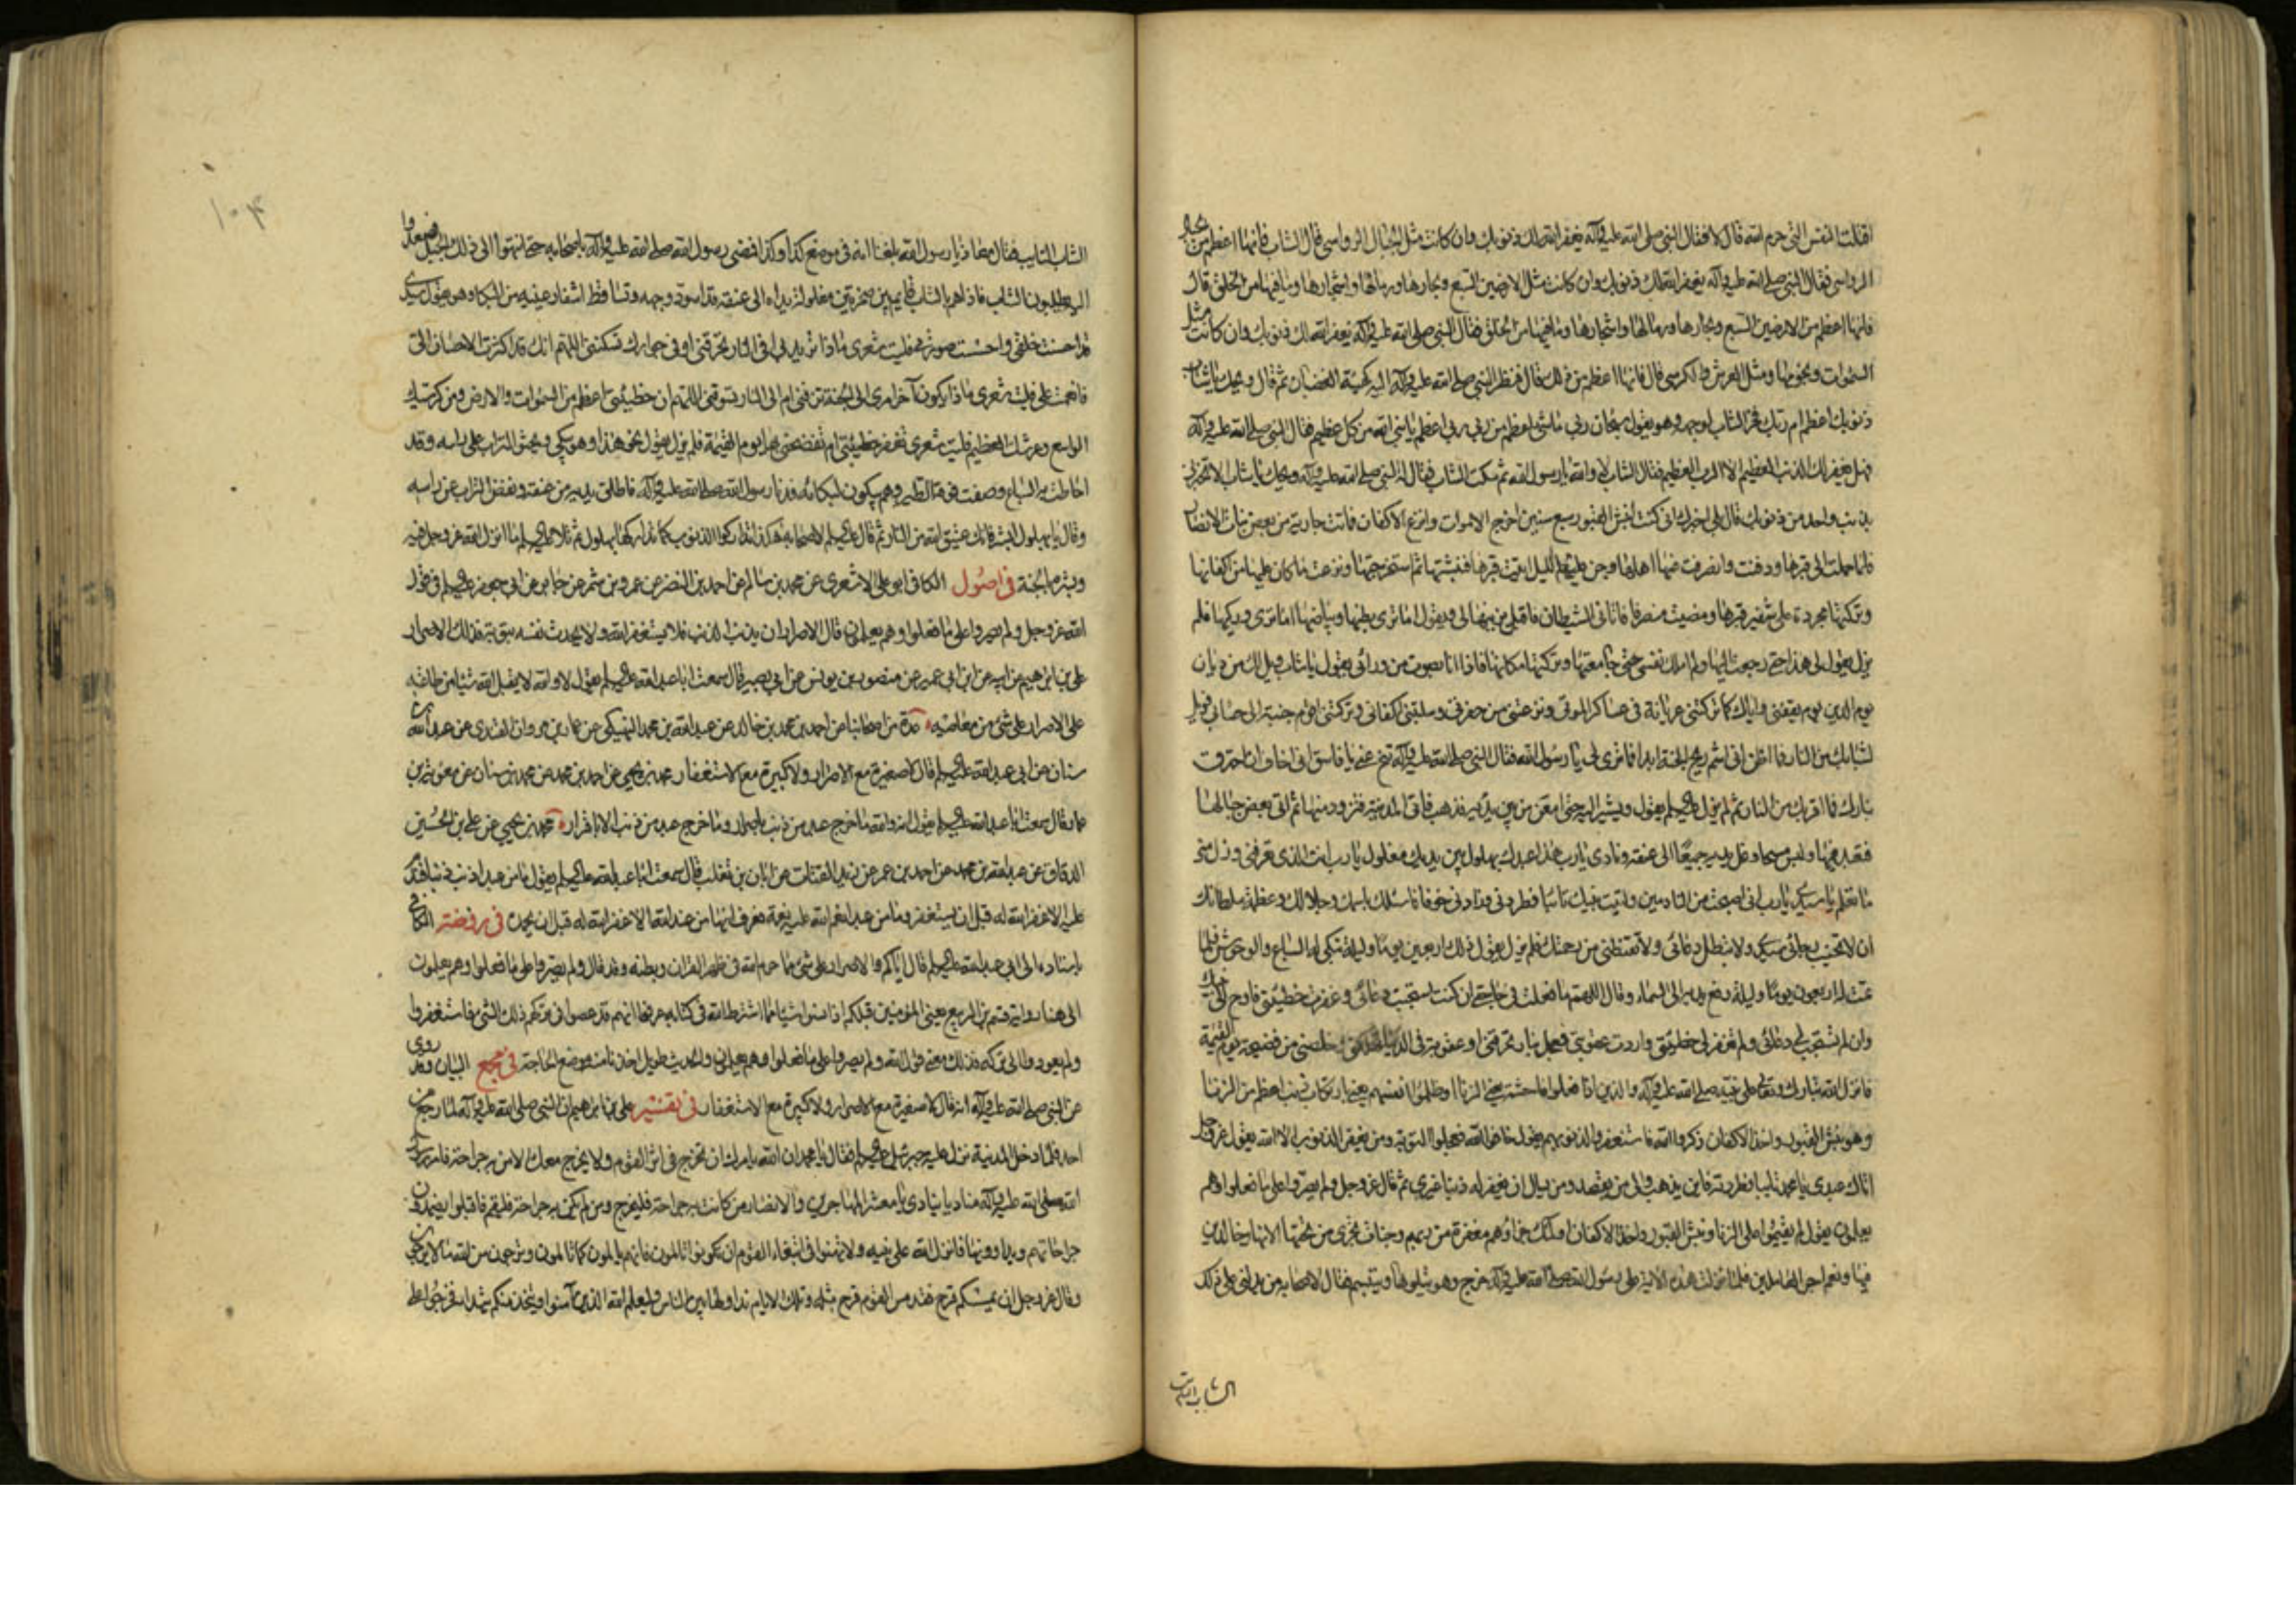 اقتلت النفس التي حرم الله قال لا فقال النبي صلى الله عليه وآله يغفر الله لك ذنوبك وان كانت مثل الجبال الرواسي قال الشاب فانها اعظم من الجبال
الرواسي فقال النبي صلى الله عليه وآله يغفر الله لك ذنوبك وان كانت مثل الارضين السبع وبحارها ورمالها واشجارها وما فيها من الخلق قال
فانها اعظم من الارضين السبع وبحارها ورمالها واشجارها وما فيها من الخلق فقال النبي صلى الله عليه وآله يغفر الله لك ذنوبك وان كانت مثل
السموات ونجومها ومثل العرش والكرسي قال فانها اعظم من ذلك قال فنظر النبي صلى الله عليه وآله اليه كهيئة الغضبان ثم قال ويحك يا شاب
ذنوبك اعظم ام ربك فخر الشاب لوجهه وهو يقول سبحان ربي ما شئ اعظم من ربي ربي اعظم يا نبي الله من كل عظيم فقال النبي صلى الله عليه وآله
فهل يغفر لك الذنب العظيم الا الرب العظيم فقال الشاب لا والله يا رسول الله ثم سكت الشاب فقال له النبي صلى الله عليه وآله ويحك يا شاب الا تخبرني
بذنب واحد من ذنوبك قال بلى اخبرك اني كنت انبش القبور سبع سنين اخرج الاموات وانزع الاكفان فماتت جارية من بعض بنات الانصار
فلما حملت الى قبرها ودفنت وانصرف عنها اهلها وجن عليهم الليل اتيت قبرها فنبشتها ثم استخرجتها ونزعت ما كان عليها من اكفانها
وتركتها مجردة على شفير قبرها ومضيت منصرفا فاتاني الشيطان فاقبل يزينها لي ويقول اما ترى بطنها وبياضها اما ترى وركيها فلم
يزل يقول لي هذا حتى رجعت اليها ولم املك نفسي حتى جامعتها وتركتها مكانها فاذا انا بصوت من ورائي يقول يا شاب ويل لك من ديان
يوم الدين يوم يقفني واياك كما تركتني عريانة في عساكر الموتى ونزعتني من حفرتي وسلبتني اكفاني وتركتني اقوم جنبة الى حسابي فويل
لشبابك من النار فما اظن اني اشم ريح الجنة ابدا فما ترى لي يا رسول الله فقال النبي صلى الله عليه وآله تنح عني يا فاسق اني اخاف ان احترق
بنارك فما اقربك من النار ثم لم يزل عليه السلم يقول ويشير اليه حتى امعن من بين يديه فذهب فاتى المدينة فتزود منها ثم اتى بعض جبالها
فتعبد فيها ولبس مسحا وغل يديه جميعا الى عنقه ونادى يا رب هذا عبدك بهلول بين يديك مغلول يا رب انت الذي تعرفني وزل مني
ما تعلم يا سيدي يا رب اني اصبحت من النادمين واتيت نبيك تائبا فطردني وزادني خوفا فاسئلك باسمك وجلالك وعظمة سلطانك
ان لا تخيب رجائي سيدي ولا تبطل دعائي ولا تقنطني من رحمتك فلم يزل يقول ذلك اربعين يوما وليلة تبكي له السباع والوحوش فلما
تمت له اربعون يوما وليلة رفع يديه الى السماء وقال اللهم ما فعلت في حاجتي ان كنت استجبت دعائي وغفرت خطيئتي فاوح الى نبيك
وان لم تستجب لي دعائي ولم تغفر لي خطيئتي واردت عقوبتي فعجل بنار تحرقني او عقوبة في الدنيا تهلكني وخلصني من فضيحة يوم القيمة
فانزل الله تبارك وتعالى على نبيه صلى الله عليه وآله والذين اذا فعلوا فاحشة يعني الزنا او ظلموا انفسهم يعني بارتكاب ذنب اعظم من الزنا
وهو نبش القبور واخذ الاكفان ذكروا الله فاستغفروا لذنوبهم يقول خافوا الله فعجلوا التوبة ومن يغفر الذنوب الا الله يقول عز وجل
اتاك عبدي يا محمد تائبا فطردته فاين يذهب والى من يقصد ومن يسال ان يغفر له ذنبا غيري ثم قال عز وجل ولم يصروا على ما فعلوا وهم
يعلمون يقول لم يقيموا على الزنا ونبش القبور واخذ الاكفان اولئك جزاؤهم مغفرة من ربهم وجنات تجري من تحتها الانهار خالدين
فيها ونعم اجر العاملين فلما نزلت هذه الاية على رسول الله صلى الله عليه وآله خرج وهو يتلوها ويتبسم فقال لاصحابه من يدلني على ذلك
الشاب التائب
١٠٤
الشاب التايب فقال معاذ يا رسول الله بلغنا انه في موضع كذا وكذا فمضى رسول الله صلى الله عليه وآله باصحابه حتى انتهوا الى ذلك الجبل فصعدوا
اليه يطلبون الشاب فاذا هم بالشاب قايم بين صخرتين مغلولة يداه الى عنقه قد اسود وجهه وتساقط اشفار عينيه من البكاء وهو يقول سيدي
قد احسنت خلقي واحسنت صورتي فليت شعري ماذا تريد بي افي النار تحرقني او في جوارك تسكنني اللهم انك قد اكثرت الاحسان الي
فانعمت علي فليت شعري ماذا يكون آخر امري الى الجنة تزفني ام الى النار تسوقني اللهم ان خطيئتي اعظم من السموات والارض ومن كرسيك
الواسع وعرشك العظيم فليت شعري تغفر خطيئتي ام تفضحني بها يوم القيمة فلم يزل يقول نحو هذا وهو يبكي ويحثو التراب على راسه وقد
احاطت به السباع وصفت فوقه الطير وهم يبكون لبكائه فدنا رسول الله صلى الله عليه وآله فاطلق يديه من عنقه ونفض التراب عن راسه
وقال يا بهلول ابشر فانك عتيق الله من النار ثم قال عليه السلم لاصحابه هكذا تداركوا الذنوب كما تداركها بهلول ثم تلا عليه السلم ما انزل الله عز وجل فيه
وبشره بالجنة في اصول الكافي ابو علي الاشعري عن محمد بن سالم عن احمد بن النضر عن عمرو بن شمر عن جابر عن ابي جعفر عليه السلم في قول
الله عز وجل ولم يصروا على ما فعلوا وهم يعلمون قال الاصرار ان يذنب الذنب فلا يستغفر الله ولا يحدث نفسه بتوبة فذلك الاصرار
علي بن ابرهيم عن ابيه عن ابن ابي عمير عن منصور بن يونس عن ابي بصير قال سمعت ابا عبد الله عليه السلم يقول لا والله لا يقبل الله شيئا من طاعته
على الاصرار على شئ من معاصيه عدة من اصحابنا عن احمد بن محمد بن خالد عن عبد الله بن محمد النهيكي عن عمار بن مروان القندي عن عبد الله بن
سنان عن ابي عبد الله عليه السلم قال لا صغيرة مع الاصرار ولا كبيرة مع الاستغفار محمد بن يحيى عن احمد بن محمد عن محمد بن سنان عن معوية بن
عمار قال سمعت ابا عبد الله عليه السلم يقول انه والله ما خرج عبد من ذنب باصرار وما خرج عبد من ذنب الا باقرار محمد بن يحيى عن علي بن الحسين
الدقاق عن عبد الله بن محمد عن احمد بن عمر عن زيد القتات عن ابان بن تغلب قال سمعت ابا عبد الله عليه السلم يقول ما من عبد اذنب ذنبا فندم
عليه الا غفر الله له قبل ان يستغفر وما من عبد انعم الله عليه نعمة فعرف انها من عند الله الا غفر الله له قبل ان يحمده في روضة الكافي
باسناده الى ابي عبد الله عليه السلم قال اياكم والاصرار على شئ مما حرم الله في ظهر القرآن وبطنه وقد قال ولم يصروا على ما فعلوا وهم يعلمون
الى هنا رواية قسم بن الربيع يعني المؤمنين قبلكم اذا نسوا شيئا مما اشترط الله في كتابه عرفوا انهم قد عصوا في تركهم ذلك الشئ فاستغفروا
ولم يعودوا الى تركه فذلك معنى قول الله ولم يصروا على ما فعلوا وهم يعلمون والحديث طويل اخذنا منه موضع الحاجة في مجمع البيان وقد روي
عن النبي صلى الله عليه وآله انه قال لا صغيرة مع الاصرار ولا كبيرة مع الاستغفار في تفسير علي بن ابرهيم ان النبي صلى الله عليه وآله لما رجع من
احد فلما دخل المدينة نزل عليه جبرئيل عليه السلم فقال يا محمد ان الله يامرك ان تخرج في اثر القوم ولا يخرج معك الا من به جراحة فامر رسول
الله صلى الله عليه وآله مناديا ينادي يا معشر المهاجرين والانصار من كانت به جراحة فليخرج ومن لم يكن به جراحة فليقم فاقبلوا يضمدون
جراحاتهم ويداوونها فانزل الله على نبيه ولا تهنوا في ابتغاء القوم ان تكونوا تالمون فانهم يالمون كما تالمون وترجون من الله ما لا يرجون
وقال عز وجل ان يمسسكم قرح فقد مس القوم قرح مثله وتلك الايام نداولها بين الناس وليعلم الله الذين آمنوا ويتخذ منكم شهداء فخرجوا على